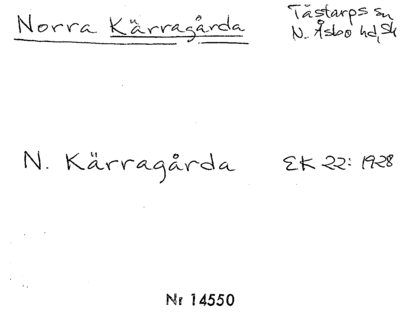 Norra Kärragårda
Tåstarps sn
N. Åsbo hd, Sk
N. Kärragårda
EK 22: 1928
Nr 14550